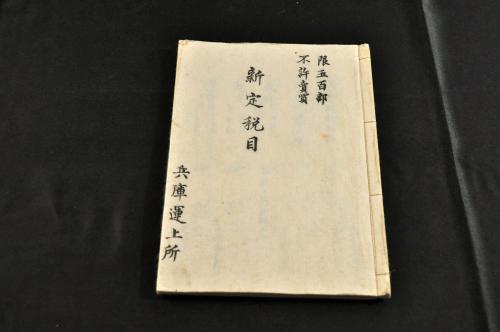 限五百部
不許賣買
新定税目
兵庫運上所